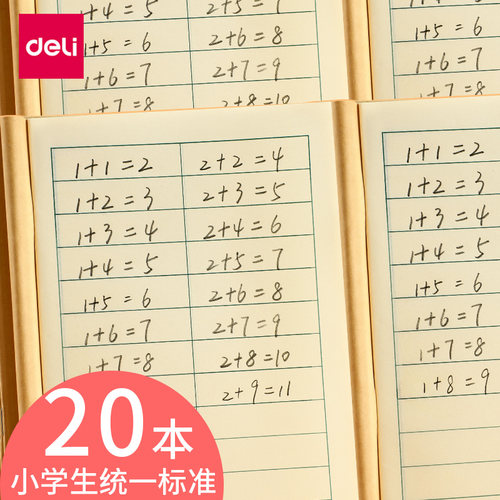 deli
1+4=5 2+5=7
1+5=6 2+6=8
1+6=7 2+7=9
1+7=8 2+8=10
1+4=5
1+5=6
1+6=7
1+7=8
1+1=2 2+2=4
1+2=3 2+3=5
1+3=4 2+4=6
1+4=5 2+5=7
1+5=6 2+6=8
1+6=7 2+7=9
1+7=8 2+8=10
2+9=11
1+1=2
1+2=3
1+3=4
1+4=5
1+5=6
1+6=7
1+7=8
1+8=9
20本
小学生统一标准